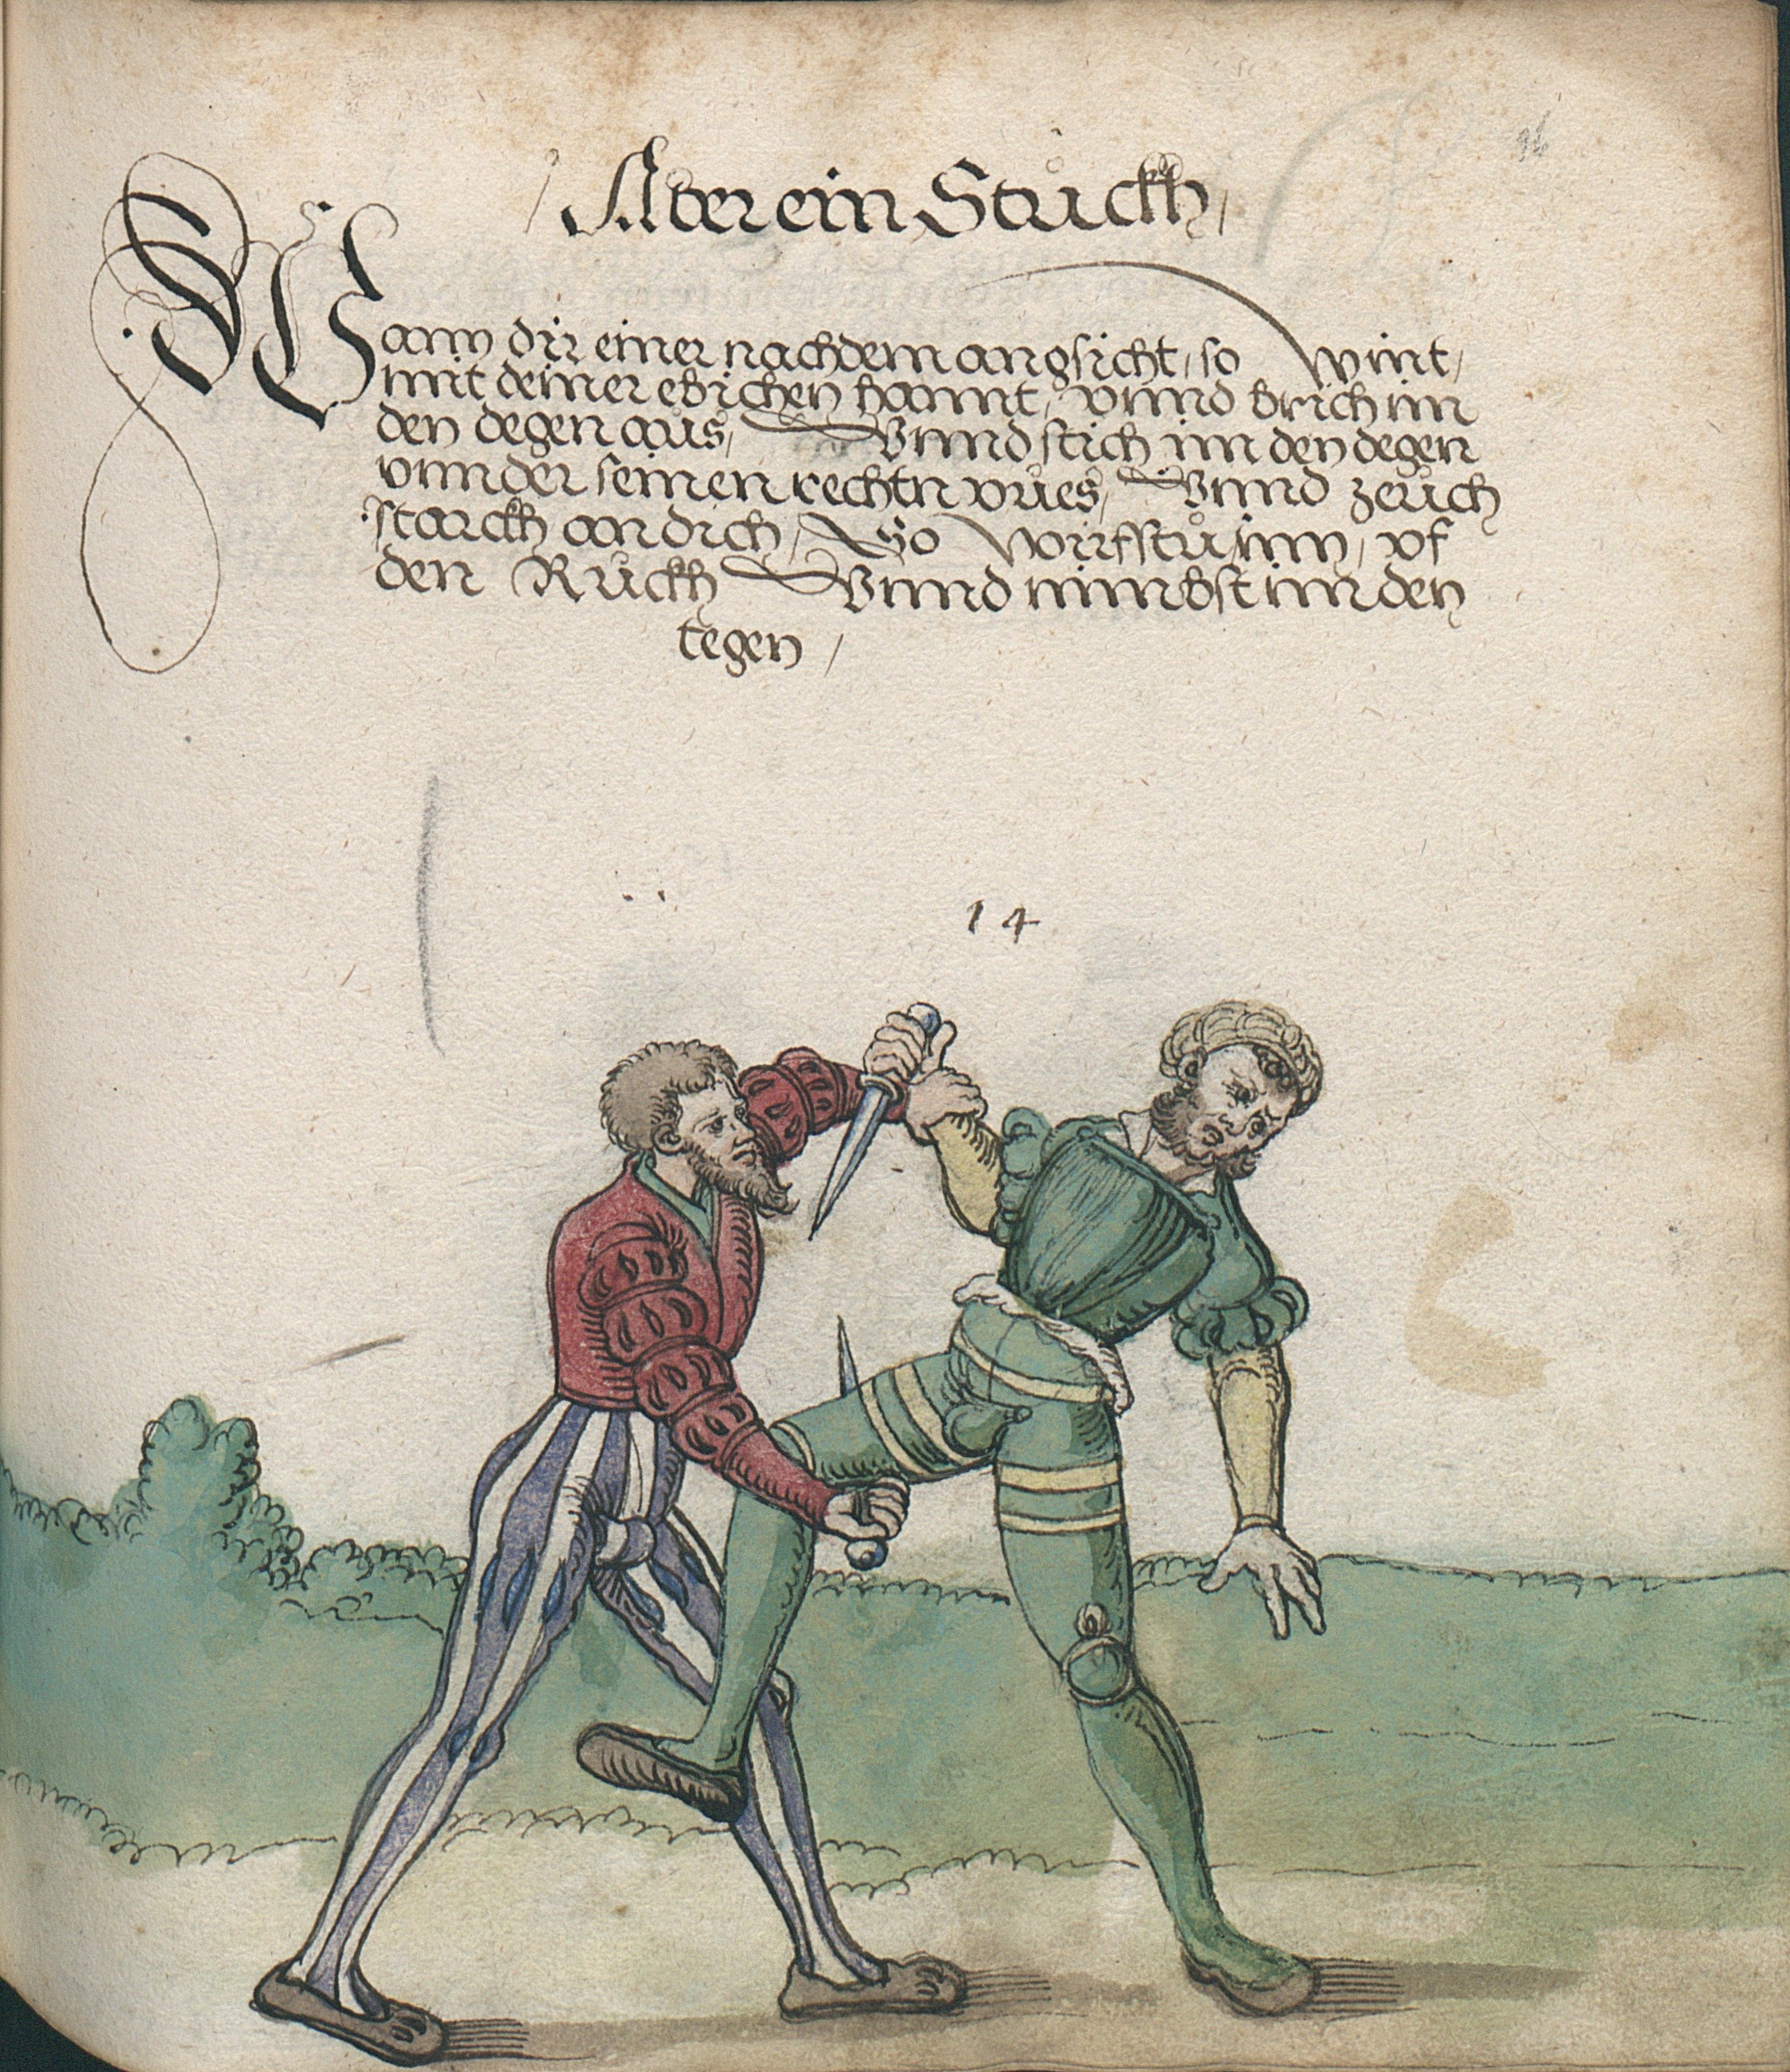 Aber ein Stuckh,
Wann dir einer nach dem angsicht, so wint,
mit deiner ebichen hannt, vnnd brich im
den degen aus, Vnnd stich im den degen
vnnder seinen rechtn vues, Vnnd zeuch
starckh an dich, So wirfstu inn, vf
den Ruckh Vnnd nimbst im den
tegen,
14